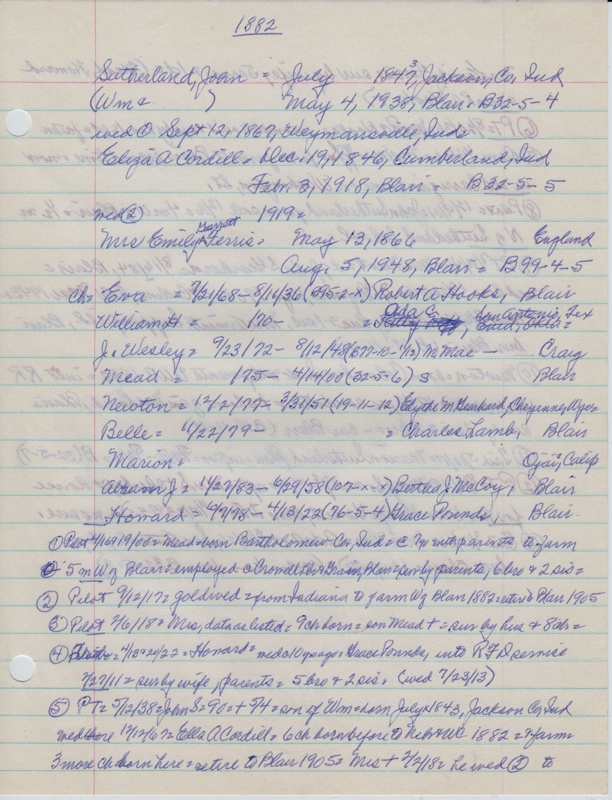 1882
Sutherland, John = July 1847,3 Jackson, Co, Ind
(Wm & ) May 4, 1938, Blair = B32-5-4
wed ① Sept 12, 1867, Weymansville, Ind
Eliza A Cordill = Dec. 19, 1846, Cumberland, Ind
Febr. 3, 1918, Blair B 32-5-5
wed ② 1919 =
Garrett
Mrs Emily Ferris = May 13, 1866 England
Aug. 5, 1948, Blair = B99-4-5
Ch = Eva = 7/21/68 - 8/11/36 Robert A Hooks, Blair
William H = /70 - = Ada C. San Antonio, Tex
J. Wesley = 9/23/72 - 8/12/48 M Mae - Craig
Mead = /75 - 4/14/00 (32-5-6) S Blair
Newton = 12/2/77 - 3/31/51 (19-11-12) Cheyenne, Wyo
Belle = 11/22/79 - = Charles Lamb, Blair
Marion = Ojai, Calif
J = 11/27/83 - 6/29/58 (107-x-x) Bertha J. McCoy, Blair
Howard = - 4/13/22 (76-5-4) Grace Pounds, Blair
① Pilot 4/19/1900 = Mead = born Bartholomew Co, Ind = C Ty with parents to farm
5 m W of Blair = employed Blair = sur by parents, 6 bro & 2 sis =
② Pilot 9/12/17 = gold wed = from Indiana to farm W of Blair 1882 = retire to Blair 1905
③ Pilot 2/6/18 = Mrs, data as listed = 9 ch born = son Mead + = sur by hus & 8 ch =
④ 4/1922 = Howard = wed 10 yr ago = Grace Pounds, into
7/27/11 = sur by wife, parents = 5 bro & 2 sis = (wed 7/23/13)
⑤ PT = 5/12/38 = John S = 90 = + 5/4 = son of Wm = born July 1843, Jackson Co Ind
wed 12/67 = Ella A Cordill = 6 ch born before to Nebr & WC 1882 = farm
3 more ch born here = retire to Blair 1905 = Mrs + 2/2/18 = he wed ② to